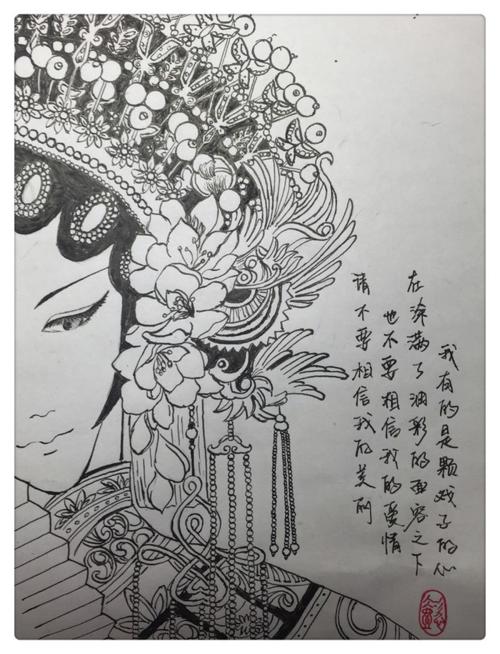 请不要相信我的美丽
也不要相信我的爱情
在涂满了油彩的面容之下
我有的是颗戏子的心